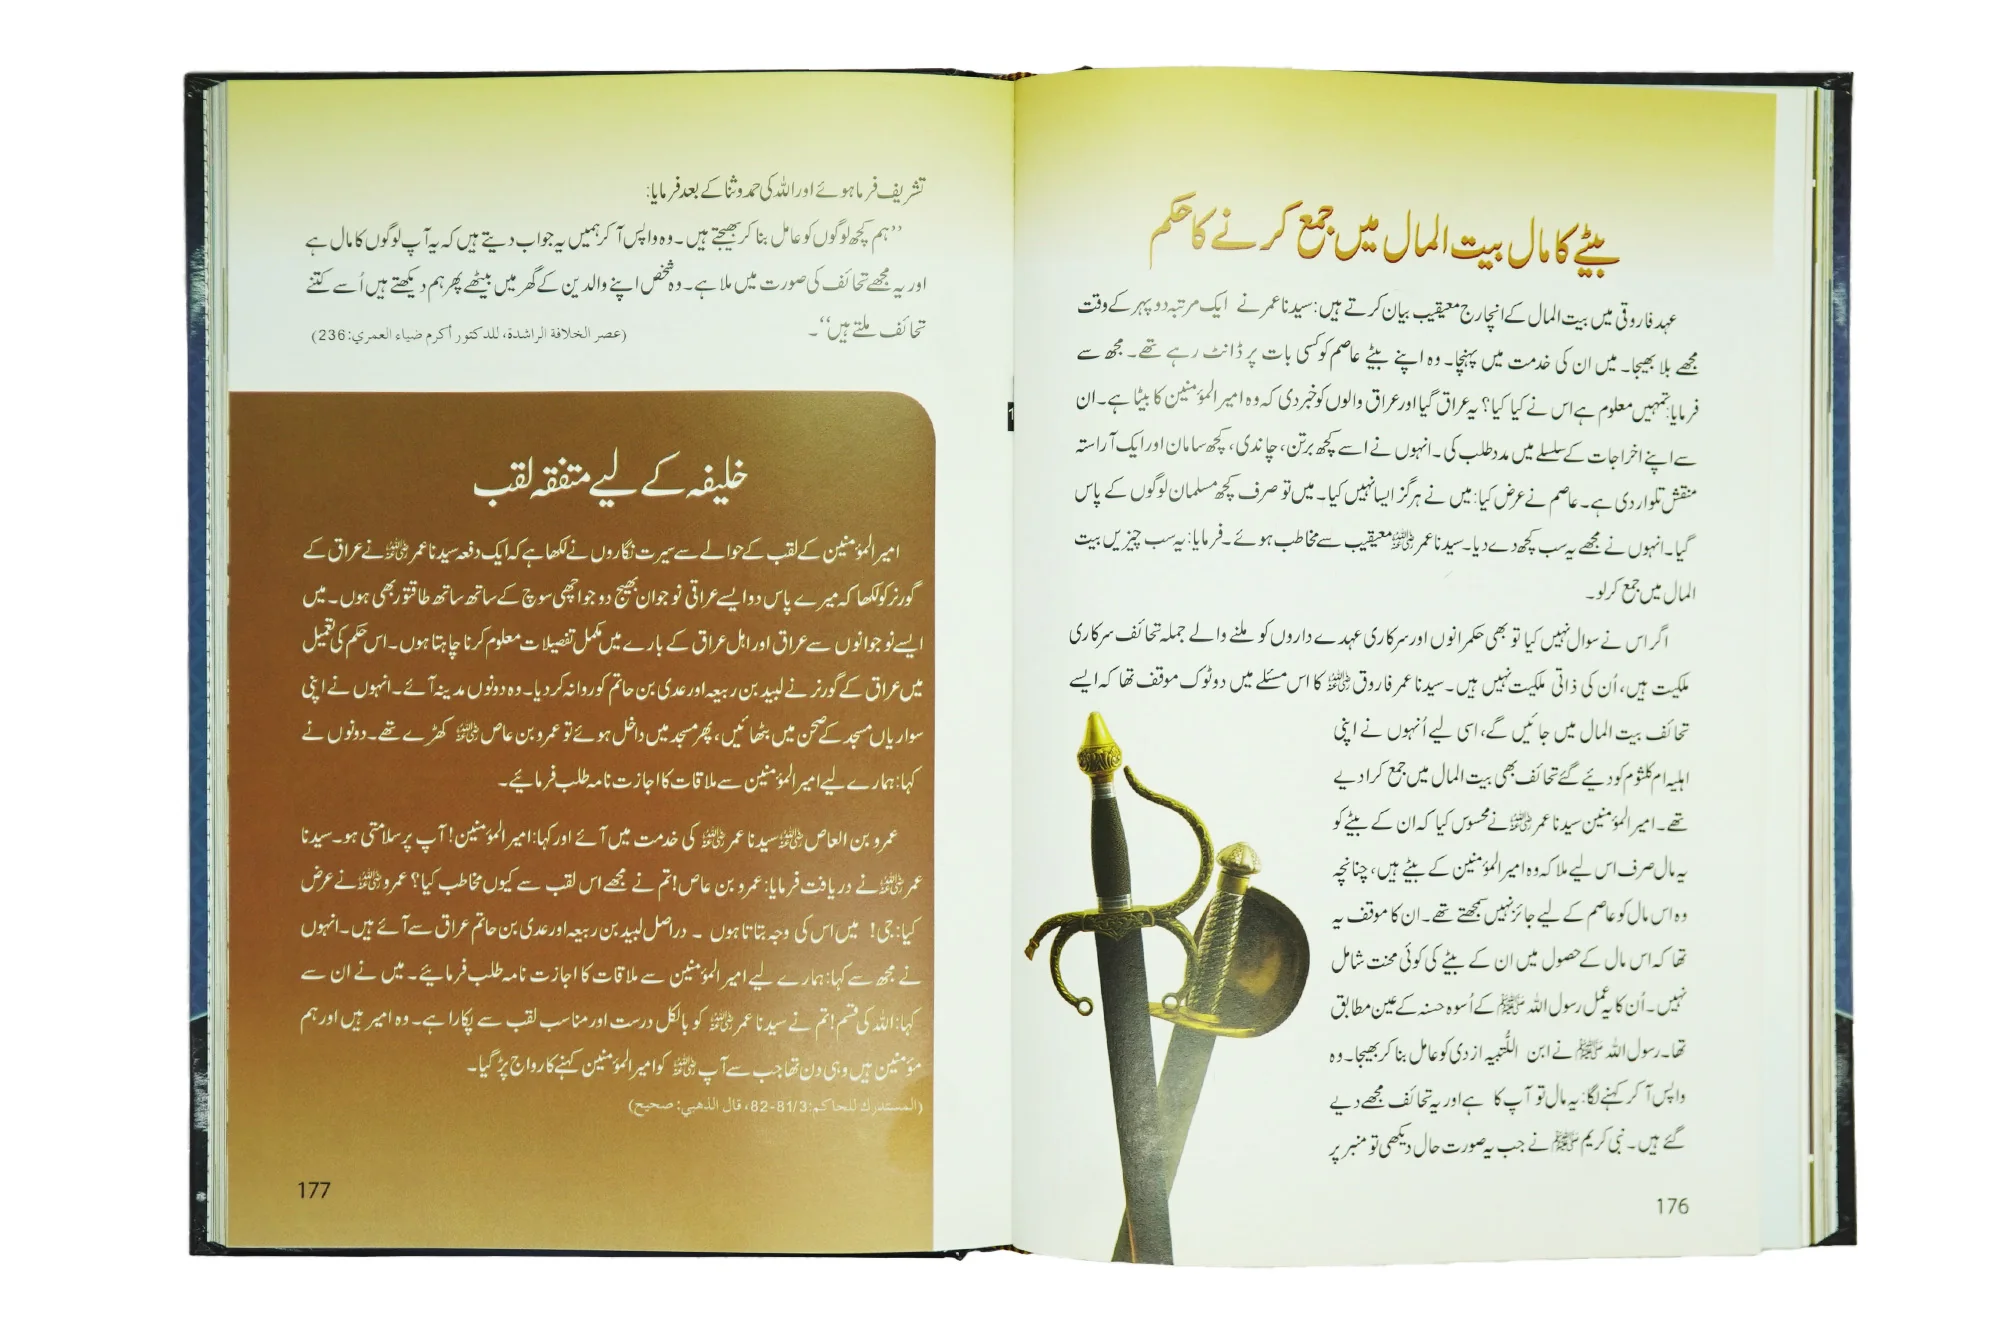 بیٹے کا مال بیت المال میں جمع کرنے کا حکم
عہد فاروقی میں بیت المال کے انچارج معیقیب بیان کرتے ہیں: سیدنا عمر نے ایک مرتبہ دوپہر کے وقت
مجھے بلا بھیجا۔ میں ان کی خدمت میں پہنچا۔ وہ اپنے بیٹے عاصم کو کسی بات پر ڈانٹ رہے تھے۔ مجھ سے
فرمایا: تمہیں معلوم ہے اس نے کیا کیا؟ یہ عراق گیا اور عراق والوں کو خبر دی کہ وہ امیر المؤمنین کا بیٹا ہے۔ ان
سے اپنے اخراجات کے سلسلے میں مدد طلب کی۔ انہوں نے اسے کچھ برتن، چاندی، کچھ سامان اور ایک آراستہ
منقش تلوار دی ہے۔ عاصم نے عرض کیا: میں نے ہرگز ایسا نہیں کیا۔ میں تو صرف کچھ مسلمان لوگوں کے پاس
گیا۔ انہوں نے مجھے یہ سب کچھ دے دیا۔ سیدنا عمر رضی اللہ عنہ معیقیب سے مخاطب ہوئے۔ فرمایا: یہ سب چیزیں بیت
المال میں جمع کرلو۔
اگر اس نے سوال نہیں کیا تو بھی حکمرانوں اور سرکاری عہدے داروں کو ملنے والے جملہ تحائف سرکاری
ملکیت ہیں، اُن کی ذاتی ملکیت نہیں ہیں۔ سیدنا عمر فاروق رضی اللہ عنہ کا اس مسئلے میں دوٹوک موقف تھا کہ ایسے
تحائف بیت المال میں جائیں گے، اسی لیے اُنہوں نے اپنی
اہلیہ ام کلثوم کو دیئے گئے تحائف بھی بیت المال میں جمع کرا دیے
تھے۔ امیر المؤمنین سیدنا عمر رضی اللہ عنہ نے محسوس کیا کہ ان کے بیٹے کو
یہ مال صرف اس لیے ملا کہ وہ امیر المؤمنین کے بیٹے ہیں، چنانچہ
وہ اس مال کو عاصم کے لیے جائز نہیں سمجھتے تھے۔ ان کا موقف یہ
تھا کہ اس مال کے حصول میں ان کے بیٹے کی کوئی محنت شامل
نہیں۔ اُن کا یہ عمل رسول اللہ ﷺ کے اُسوہ حسنہ کے عین مطابق
تھا۔ رسول اللہ ﷺ نے ابن اللُّتبیہ ازدی کو عامل بنا کر بھیجا۔ وہ
واپس آ کر کہنے لگا: یہ مال تو آپ کا ہے اور یہ تحائف مجھے دیے
گئے ہیں۔ نبی کریم ﷺ نے جب یہ صورت حال دیکھی تو منبر پر
176
تشریف فرما ہوئے اور اللہ کی حمد و ثنا کے بعد فرمایا:
’’ہم کچھ لوگوں کو عامل بنا کر بھیجتے ہیں۔ وہ واپس آ کر ہمیں یہ جواب دیتے ہیں کہ یہ آپ لوگوں کا مال ہے
اور یہ مجھے تحائف کی صورت میں ملا ہے۔ وہ شخص اپنے والدین کے گھر میں بیٹھے پھر ہم دیکھتے ہیں اُسے کتنے
تحائف ملتے ہیں‘‘۔ (عصر الخلافة الراشدة، للدكتور أكرم ضياء العمري: 236)
خلیفہ کے لیے متفقہ لقب
امیر المؤمنین کے لقب کے حوالے سے سیرت نگاروں نے لکھا ہے کہ ایک دفعہ سیدنا عمر رضی اللہ عنہ نے عراق کے
گورنر کو لکھا کہ میرے پاس دو ایسے عراقی نوجوان بھیج دو جو اچھی سوچ کے ساتھ ساتھ طاقتور بھی ہوں۔ میں
ایسے نوجوانوں سے عراق اور اہل عراق کے بارے میں مکمل تفصیلات معلوم کرنا چاہتا ہوں۔ اس حکم کی تعمیل
میں عراق کے گورنر نے لبید بن ربیعہ اور عدی بن حاتم کو روانہ کر دیا۔ وہ دونوں مدینہ آئے۔ انہوں نے اپنی
سواریاں مسجد کے صحن میں بٹھائیں، پھر مسجد میں داخل ہوئے تو عمرو بن عاص رضی اللہ عنہ کھڑے تھے۔ دونوں نے
کہا: ہمارے لیے امیر المؤمنین سے ملاقات کا اجازت نامہ طلب فرمائیے۔
عمرو بن العاص رضی اللہ عنہ سیدنا عمر رضی اللہ عنہ کی خدمت میں آئے اور کہا: امیر المؤمنین! آپ پر سلامتی ہو۔ سیدنا
عمر رضی اللہ عنہ نے دریافت فرمایا: عمرو بن عاص! تم نے مجھے اس لقب سے کیوں مخاطب کیا؟ عمرو رضی اللہ عنہ نے عرض
کیا: جی! میں اس کی وجہ بتاتا ہوں ۔ دراصل لبید بن ربیعہ اور عدی بن حاتم عراق سے آئے ہیں۔ انہوں
نے مجھ سے کہا: ہمارے لیے امیر المؤمنین سے ملاقات کا اجازت نامہ طلب فرمائیے۔ میں نے ان سے
کہا: اللہ کی قسم! تم نے سیدنا عمر رضی اللہ عنہ کو بالکل درست اور مناسب لقب سے پکارا ہے۔ وہ امیر ہیں اور ہم
مؤمنین ہیں وہی دن تھا جب سے آپ رضی اللہ عنہ کو امیر المؤمنین کہنے کا رواج پڑ گیا۔
(المستدرك للحاكم: 81/3-82، قال الذهبي: صحيح)
177